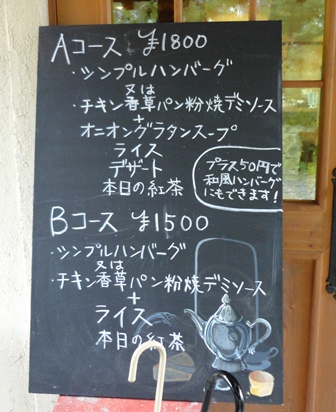 Aコース ¥1800
・シンプルハンバーグ
又は
・チキン香草パン粉焼デミソース
+
オニオングラタンスープ
ライス
デザート
本日の紅茶
プラス50円で
和風ハンバーグ
にもできます!
Bコース ¥1500
・シンプルハンバーグ
又は
・チキン香草パン粉焼デミソース
+
ライス
本日の紅茶